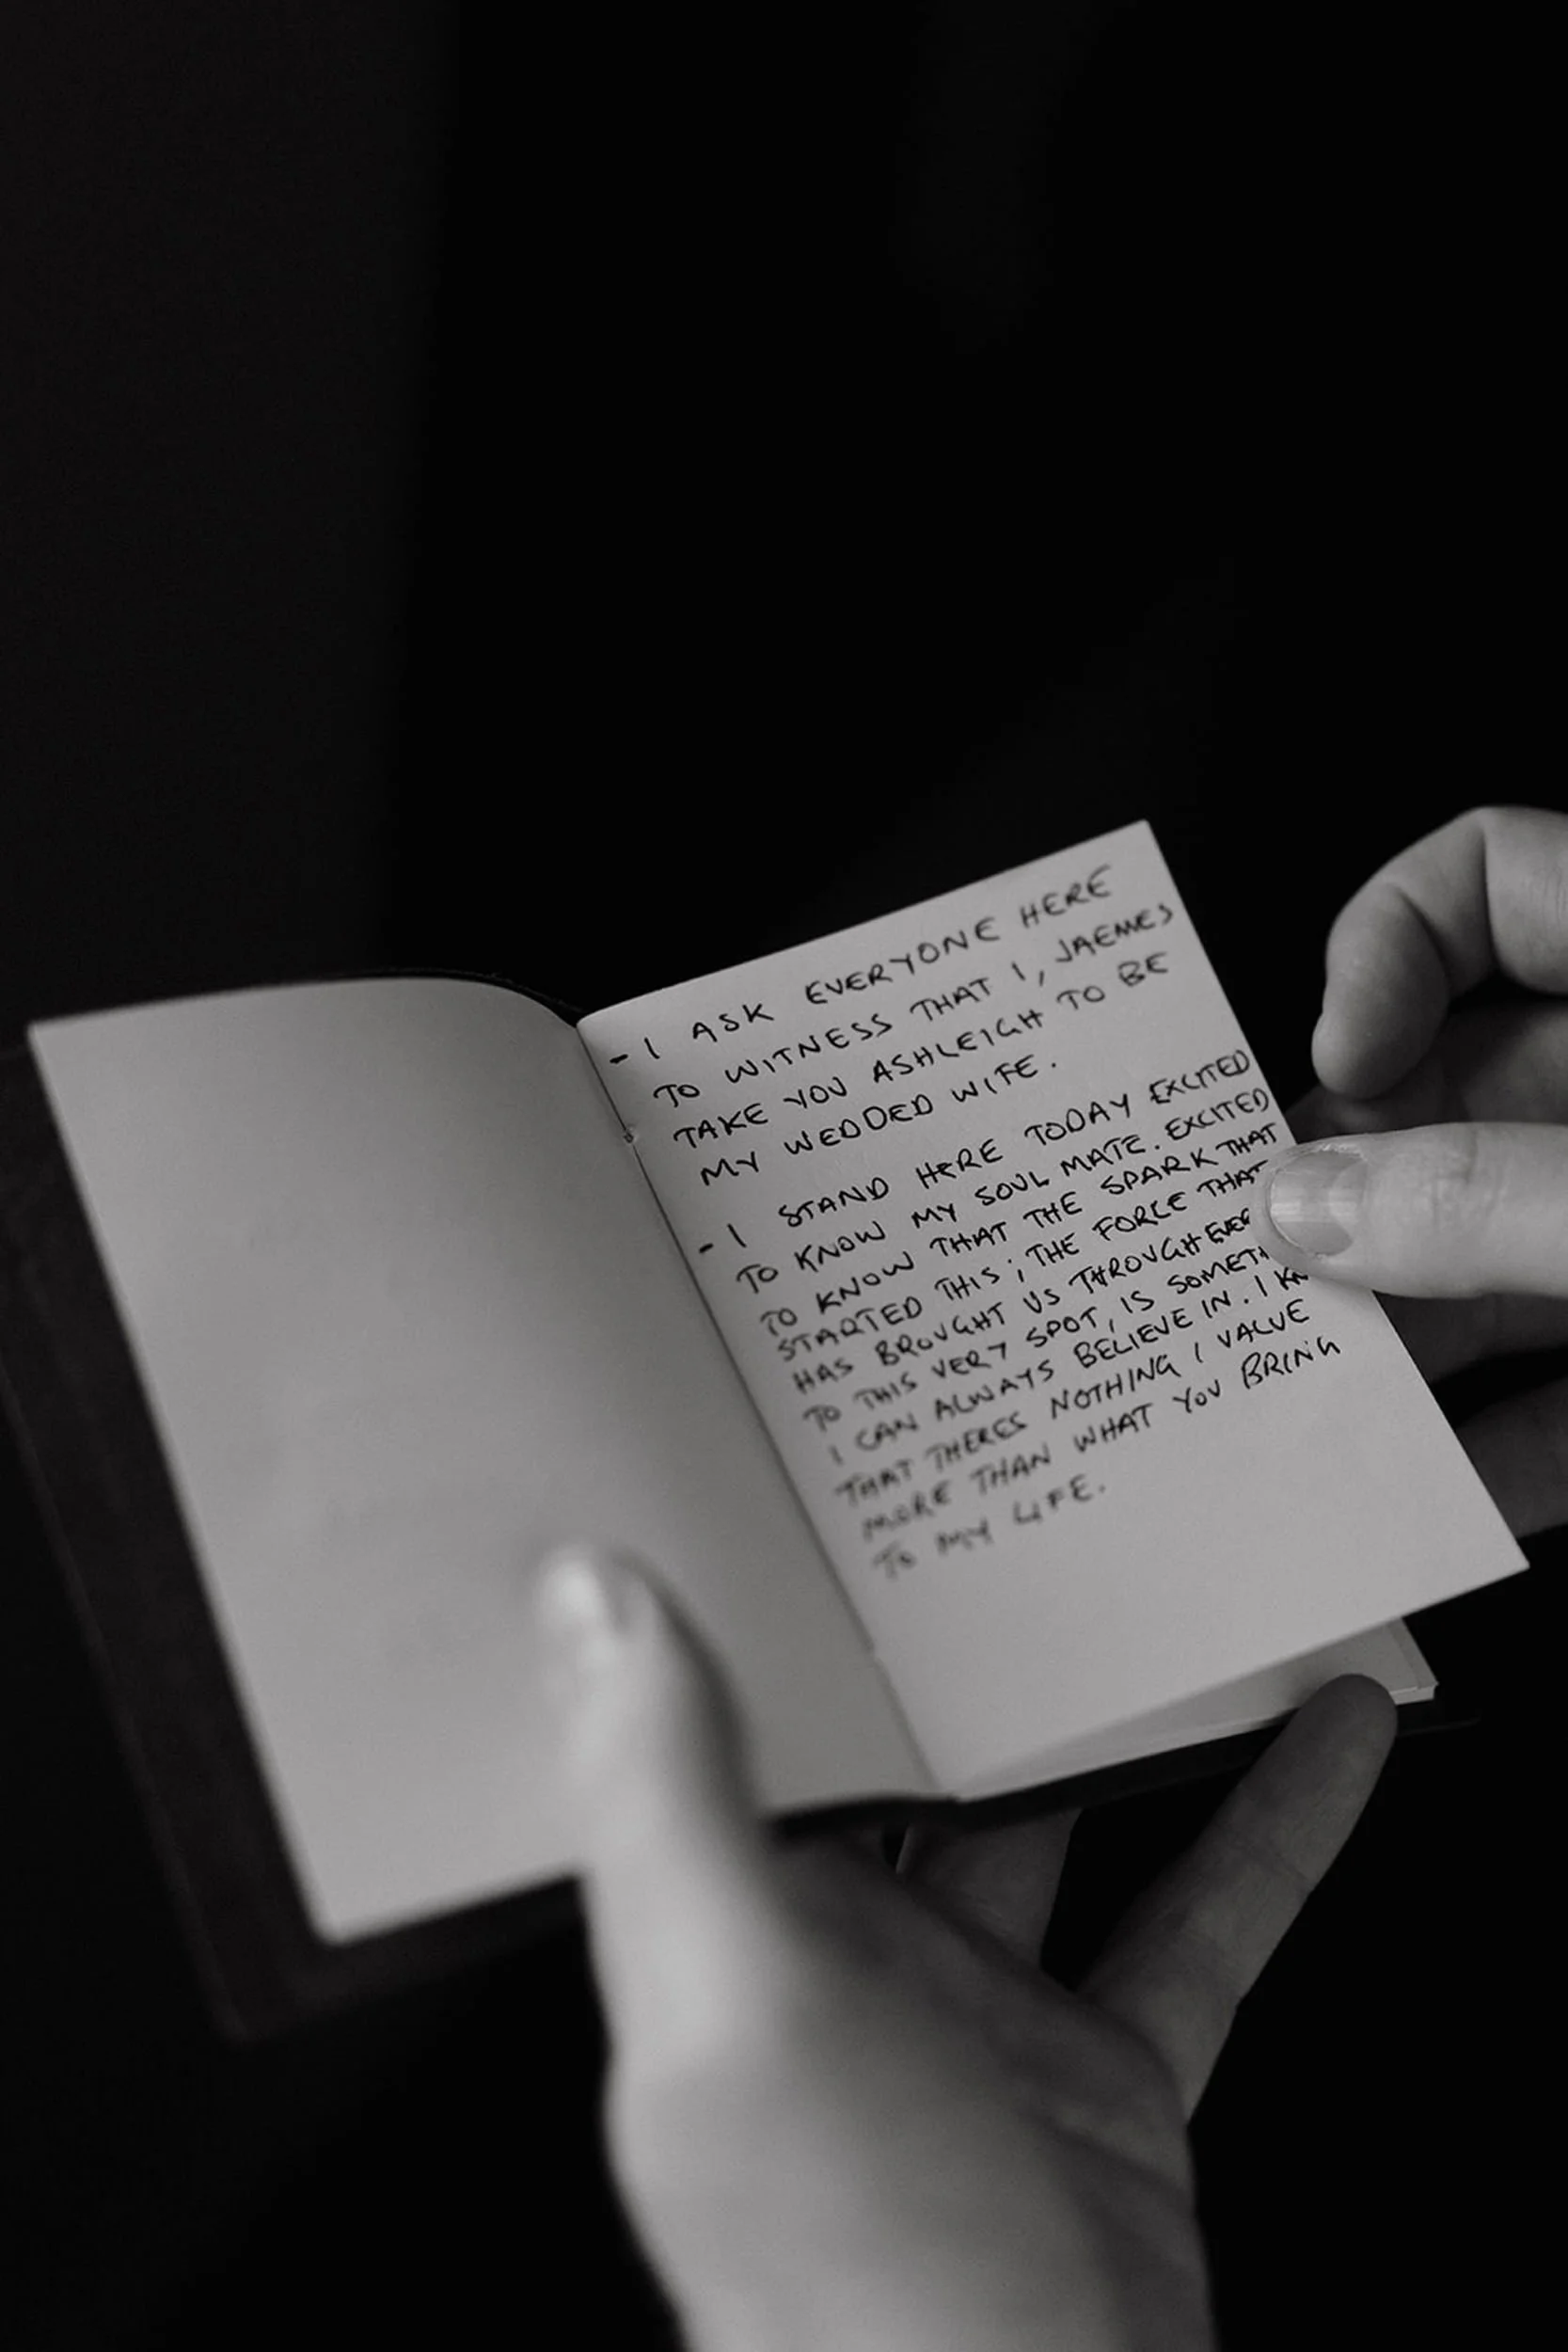 - I ASK EVERYONE HERE
TO WITNESS THAT I, JAEMES
TAKE YOU ASHLEIGH TO BE
MY WEDDED WIFE.
- I STAND HERE TODAY EXCITED
TO KNOW MY SOUL MATE. EXCITED
TO KNOW THAT THE SPARK THAT
STARTED THIS; THE FORCE THAT
HAS BROUGHT US THROUGH
TO THIS VERY SPOT, IS
I CAN ALWAYS BELIEVE IN. I
THAT THERES NOTHING I VALUE
MORE THAN WHAT YOU BRING
TO MY LIFE.